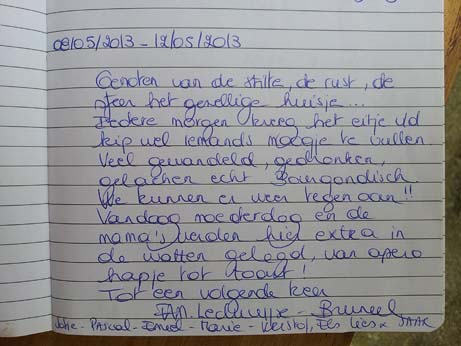 09/05/2013 - 12/05/2013
Genoten van de stilte, de rust, de
sfeer het gezellige huisje...
Iedere morgen kreeg het eitje vd
kip wel iemands maagje te vullen.
Veel gewandeld, gedronken,
gelachen echt Bourgondisch
We kunnen er weer tegenaan!!
Vandaag moederdag en de
mama's werden hier extra in
de watten gelegd, van apero
hapje tot taart!
Tot een volgende keer
Fam. - Bruneel
- Pascal - - Marie - , Els Lies x JAAK